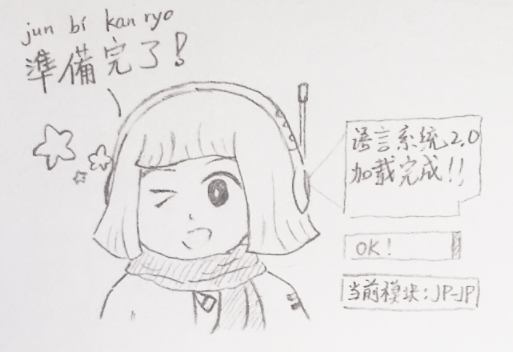 jun bi kan ryo
準備完了!
语言系统2.0
加载完成!!
OK!
当前模块:JP-JP